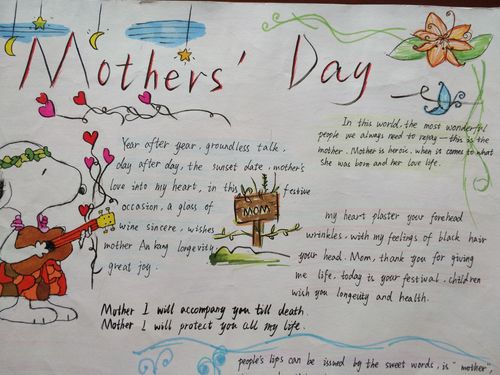 Mothers' Day
Year after year, groundless talk,
day after day, the sunset date, mother's
love into my heart, in this festive
occasion, a glass of
wine sincere, wishes
mother An kang longevity
great joy.
MOM
In this world, the most wonderful
people we always need to repay—this is the
mother. Mother is heroic. when is comes to what
she was born and her love life.
my heart plaster your forehead
wrinkles, with my feelings of black hair
your head. Mom, thank you for giving
me life. today is your festival. children
wish you longevity and health.
Mother I will accompany you till death.
Mother I will protect you all my life.
people's lips can be issued by the sweet words, is "mother",